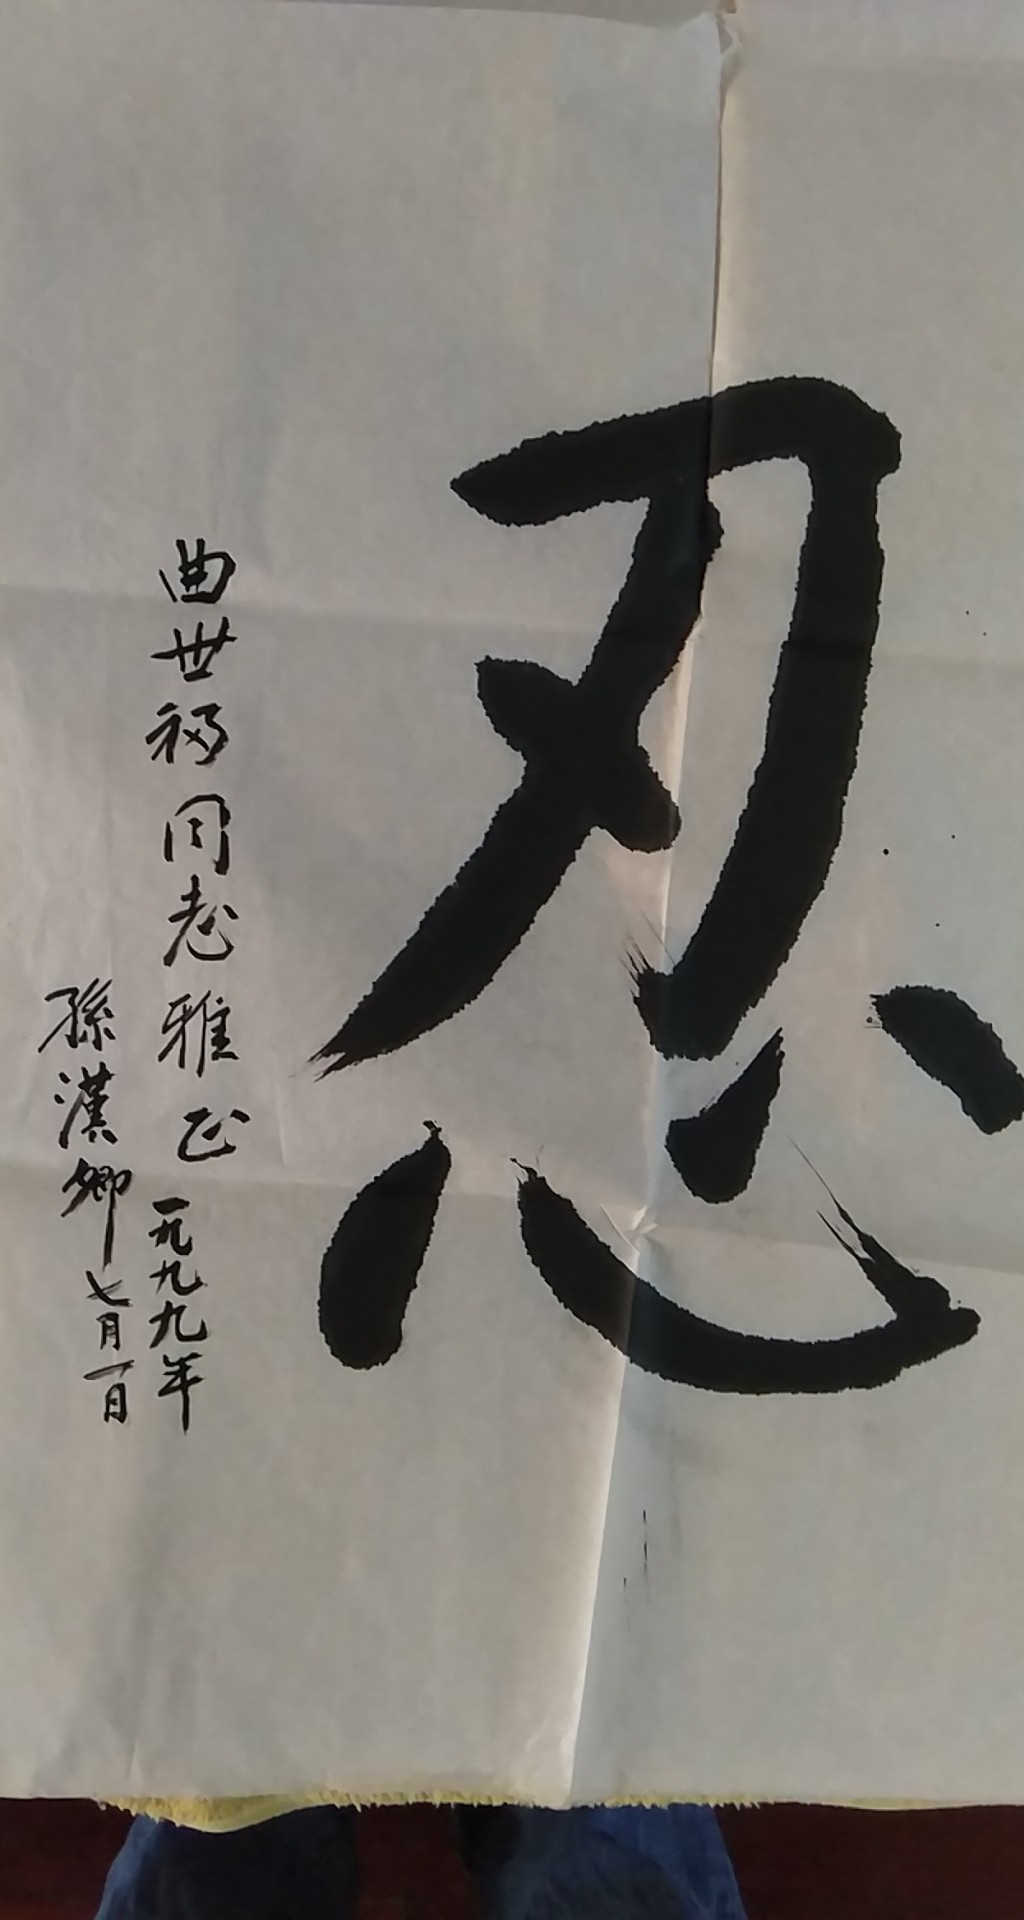 忍
曲世福同志雅正 一九九九年
孫漢卿 七月一日